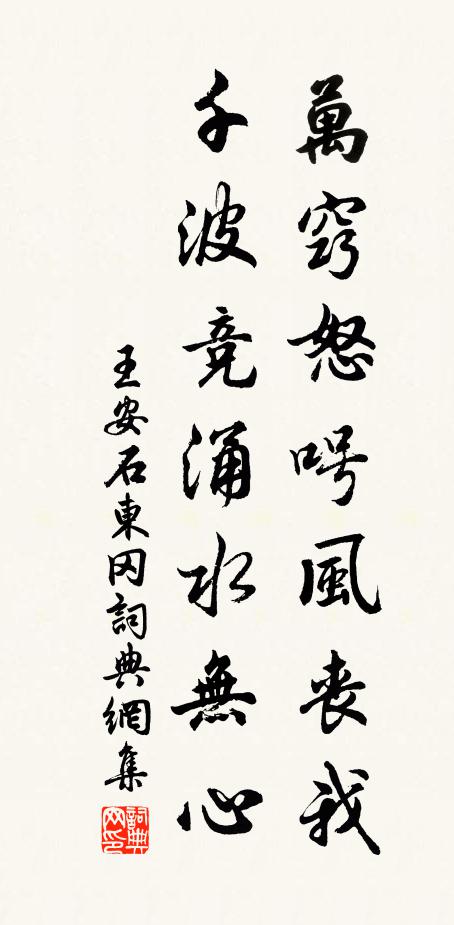 萬竅怒呺風喪我
千波競涌水無心
王安石東冈詞典網集
詞典网印